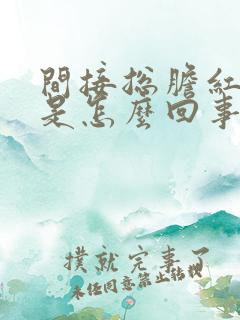 間接總膽紅
是怎麼回事
撲就完事了
未经同意禁止转载